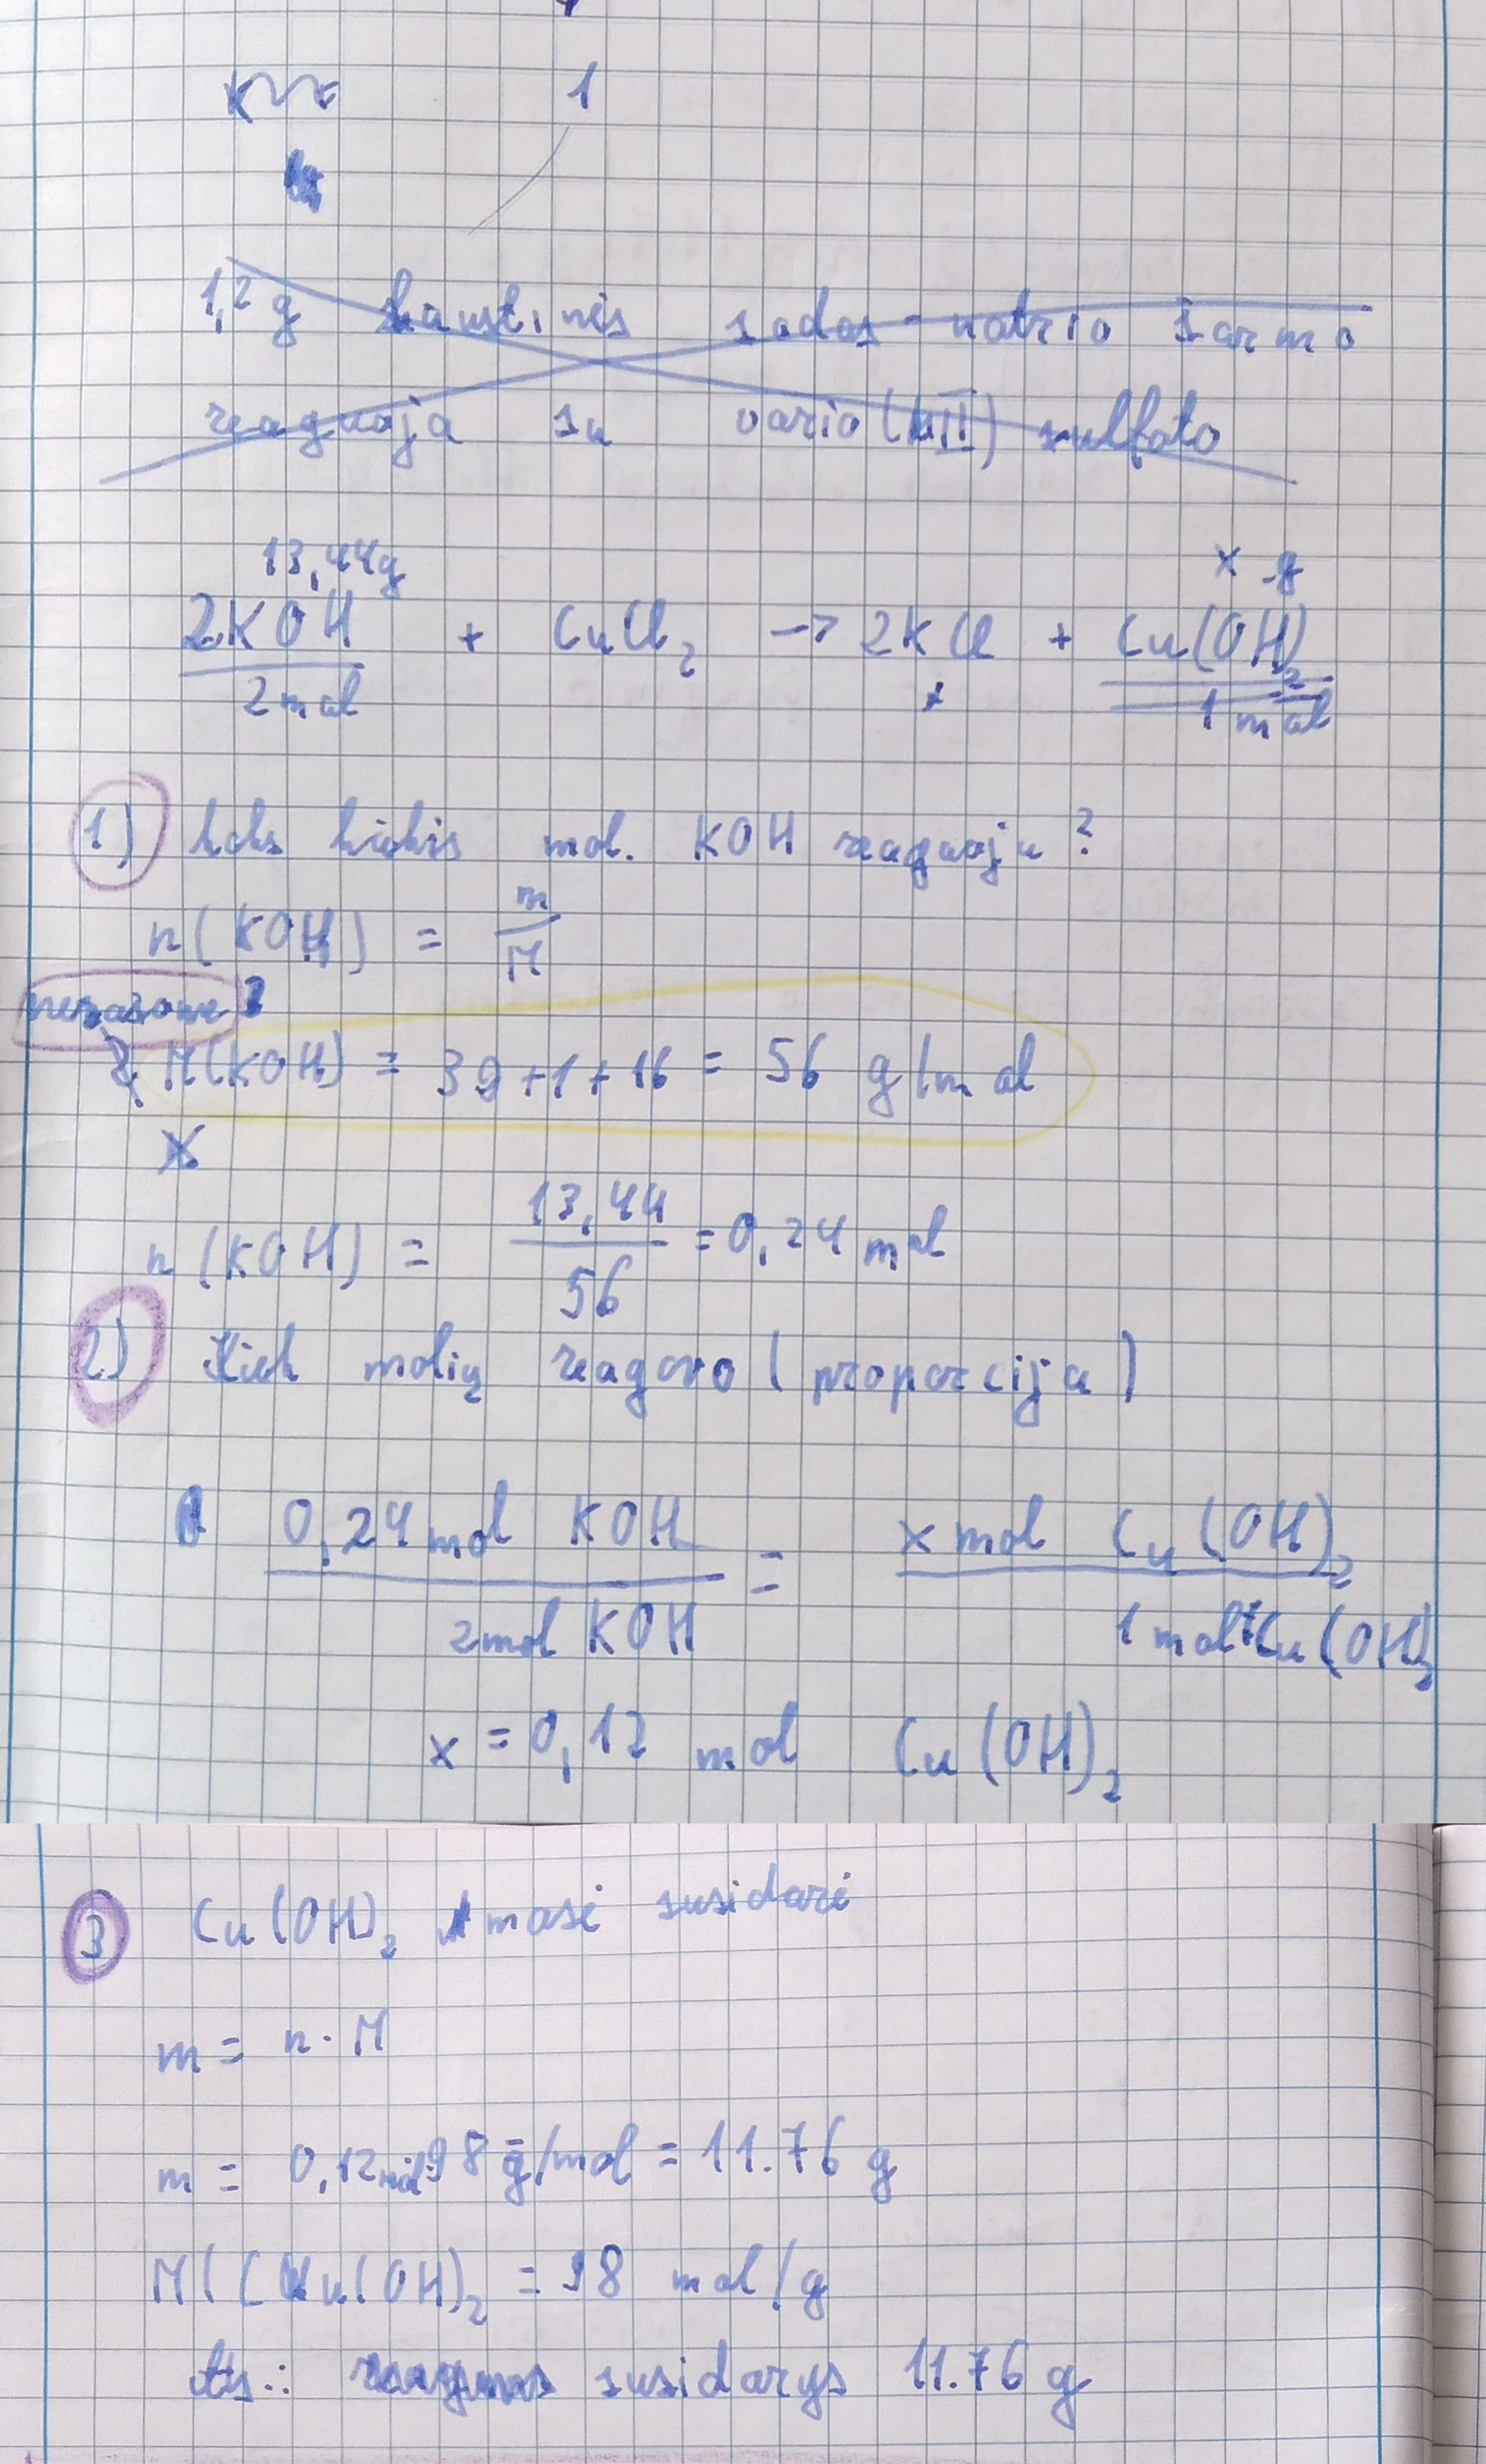 1
1,2 g kaustinės sodos - natrio šarmo
reaguoja su vario (II) sulfato
13,44g x g
2KOH + CuCl₂ → 2KCl + Cu(OH)₂
2 mol x 1 mol
1) koks kiekis mol. KOH reaguoja?
n(KOH) = m/M
M(KOH) = 39+1+16 = 56 g/mol
x
n(KOH) = 13,44/56 = 0,24 mol
2) Kiek molių reagavo (proporcija)
0,24 mol KOH / 2 mol KOH = x mol Cu(OH)₂ / 1 mol Cu(OH)₂
x = 0,12 mol Cu(OH)₂
3 Cu(OH)₂ masė susidarė
m = n · M
m = 0,12 mol · 98 g/mol = 11.76 g
M(Cu(OH)₂ = 98 mol/g
Ats.: susidarys 11.76 g